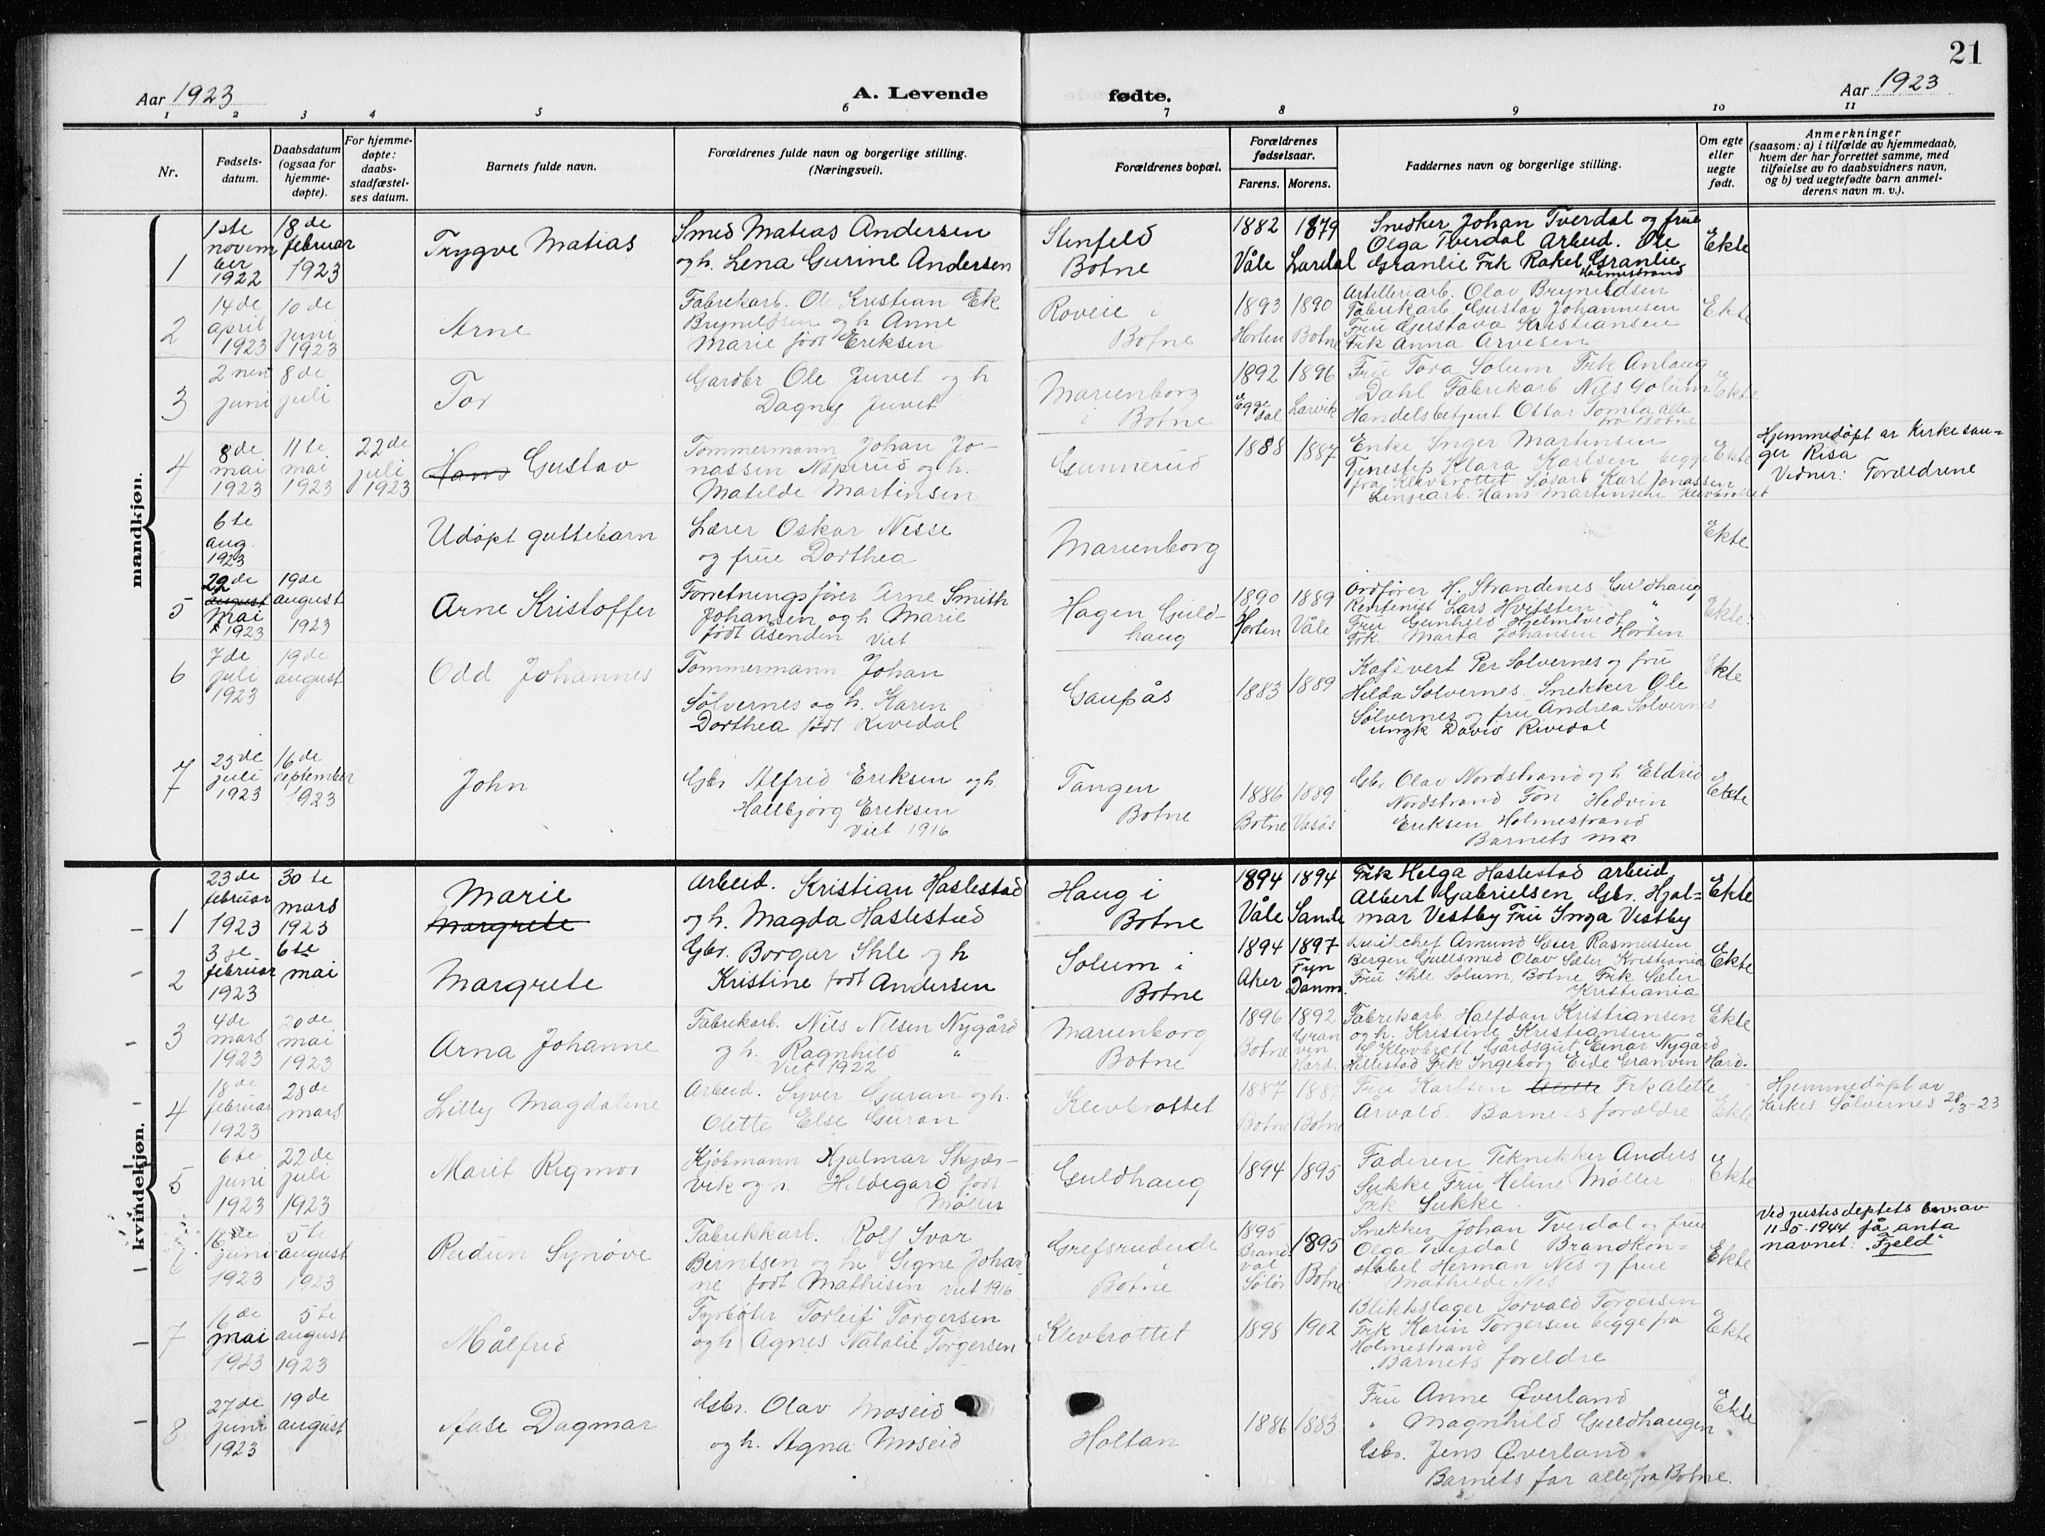 21
Aar 1923
A. Levende
fødte.
Aar 1923
1 2 3 4 5 6 7 8 9 10 11
Nr.
Fødsels-
datum.
Daabsdatum
(ogsaa for
hjemme-
døpte).
For hjemme-
døpte:
daabs-
stadfæstel-
ses datum.
Barnets fulde navn.
Forældrenes fulde navn og borgerlige stilling.
(Næringsvei).
Forældrenes bopæl.
Forældrenes
fødselsaar.
Farens. Morens.
Faddernes navn og borgerlige stilling.
Om egte
eller
uegte
født.
Anmerkninger
(saasom: a) i tilfælde av hjemmedaab,
hvem der har forrettet samme, med
tilføielse av to daabsvidners navn,
og b) ved uegtefødte barn anmel-
derens navn m. v.).
mandkjøn.
1
1ste
novem
ber
1922
18de
februar
1923
Trygve Matias
Smed Matias Andersen
og h. Lena Gurine Andersen
Stenfeld
Botne
1882
Våle
1879
Lardal
Snedker Johan Tverdal og frue
Olga Tverdal Arbeid. Ole
Granlie Frk Rakel Granlie
Holmestrand
Ekte
2
14de
april
1923
10de
juni
1923
Arne
Fabrikarb. Ole Kristian Ek
Brynildsen og h Anne
Marie født Eriksen
Roveie i
Botne
1893
Horten
1890
Botne
Artilleriarb. Olav Brynildsen
Fabrikarb. Gustav Johannesen
Frue Gustava Kristiansen
Frk Anna Arvesen
Ekte
3
2nen
juni
8de
juli
Tor
Gardbr Ole Juvet og h
Dagny Juvet
Marienborg
i Botne
1892
Egge
dal
1896
Larvik
Fru Tora Solum Frk Anlaug
Dahl Fabrikarb Nils Solum
Handelsbetjent Ottar Tomta alle
fra Botne
Ekte
4
8de
mai
1923
11te
mai
1923
22de
juli
1923
Hans Gustav
Tømmermann Johan Jo-
nassen Næperud og h.
Matilde Martinsen
Gunnerud
1888
1887
Enke Inger Martinsen
Tjenestep Klara Karlsen begge
fra Klevbrottet Løsarb Karl Jonassen
Linjearb. Hans Martinsen Klevbrottet
Ekte
Hjemmedøpt av Kirkesan-
ger Risa
Vidner: Forældrene
6te
aug.
1923
Udøpt guttebarn
Lærer Oskar Nesse
og frue Dorthea
Marienborg
Ekte
5
22de
august
Mai
1923
19de
august
1923
Arne Kristoffer
Forretningsfører Arne Smith
Johansen og h Marie
født Åsenden viet
Hagen Guld-
haug
1890
Horten
1889
Våle
Ordfører H. Strandenes Guldhaug
Rentenist Lars Hvitsten "
Fru Gunhild Hjelmtvedt "
Frk. Marta Johansen Horten
Ekte
6
7de
juli
1923
19de
august
Odd Johannes
Tømmermann Johan
Sølvernes og h. Karen
Dorthea født Rivedal
Gaupås
1883
1889
Kaféevert Per Sølvernes og fru
Hilda Sølvernes. Snekker Ole
Sølvernes og frue Andrea Sølvernes
Ungk David Rivedal
Ekte
7
25de
juli
1923
16de
september
1923
John
Gbr Alfred Eriksen og h.
Hallbjørg Eriksen
Viet 1916
Tangen
Botne
1886
Botne
1889
Vasås
Gbr. Olav Nordstrand og h Eldrid
Nordstrand Frn Hedvin
Eriksen Holmestrand
Barnets mor
Ekte
kvindekjøn.
1
23de
februar
1923
30te
mars
1923
Marie
Margrete
Arbeid. Kristian Haslestad
og h. Magda Haslestad
Haug i
Botne
1894
Våle
1894
Sande
Frk Helga Haslestad arbeid
Albert Gabrielsen Gbr. Hjal-
mar Vestby Fru Inga Vestby
Ekte
2
3je
februar
1923
6te
mai
Margrete
Gbr. Borgar Ihle og h
Kristine født Andersen
Solum i
Botne
1894
Aker
1897
Fyn
Danm.
Amund Sæter Rasmussen
Bergen Gullsmed Olav Sæter Kristiania
Fru Ihle Solum, Botne Frk Sæter
Kristiania
Ekte
3
4de
mars
1923
20de
mai
1923
Arna Johanne
Fabrikarb. Nils Nilsen Nygård
og h. Ragnhild "
Viet 1922
Marienborg
Botne
1896
Botne
1892
Gran
vin
Hard.
Fabrikarb. Halfdan Kristiansen
og h. Kristine Kristiansen
Klevbrott Gårdsgut Einar Nygård
Hillestad Frk Ingeborg Eide Granvin Hard-
Ekte
4
18de
februar
1923
28de
mars
Lilly Magdaline
Arbeid. Syver Guran og h.
Olette Else Guran
Klevbrottet
1887
Botne
1887
Botne
Fru Karlsen Frk Alette
Årvold. Barnets forældre
Ekte
Hjemmedøpt av
Kirkes. Sølvernes 28/3-23
5
6te
juni
1923
22de
juli
1923
Marit Rigmor
Kjøbmann Hjalmar Skjæs-
vik og h. Hildegard født
Møller
Guldhaug
1894
1895
Faderen Teknikker Anders
Sukke Fru Helene Møller
Frk Sukke
Ekte
6
16de
juni
1923
5te
august
1923
Reidun Synøve
Fabrikkarb. Rolf Ivar
Berntsen og h. Signe Johan
ne født Mathisen viet 1916
Grefsrudeide
i
Botne
1895
Brand
val
Solør
1895
Botne
Snekker Johan Tverdal og frue
Olga Tverdal Brandkon-
stabel Herman Nes og frue
Mathilde Nes
Ekte
Ved justisdeptets bev. av
11-5-1944 få anta
navnet: "Fjeld"
7
16de
mai
1923
5te
august
1923
Målfrid
Fyrbøter Torleif Torgersen
og h Agnes Natalie Torgersen
Klevbrottet
1898
1902
Blikkslager Torvald Torgersen
Frk Karin Torgersen begge fra
Holmestrand
Barnets foreldre
Ekte
8
27de
juni
1923
19de
august
Aase Dagmar
Gbr. Olav Moseid
og h. Agna Moseid
Holtan
1886
1883
Fru Anne Øverland
" Magnhild Guldhaugen
Gbr. Jens Øverland
Barnets far alle fra Botne.
Ekte